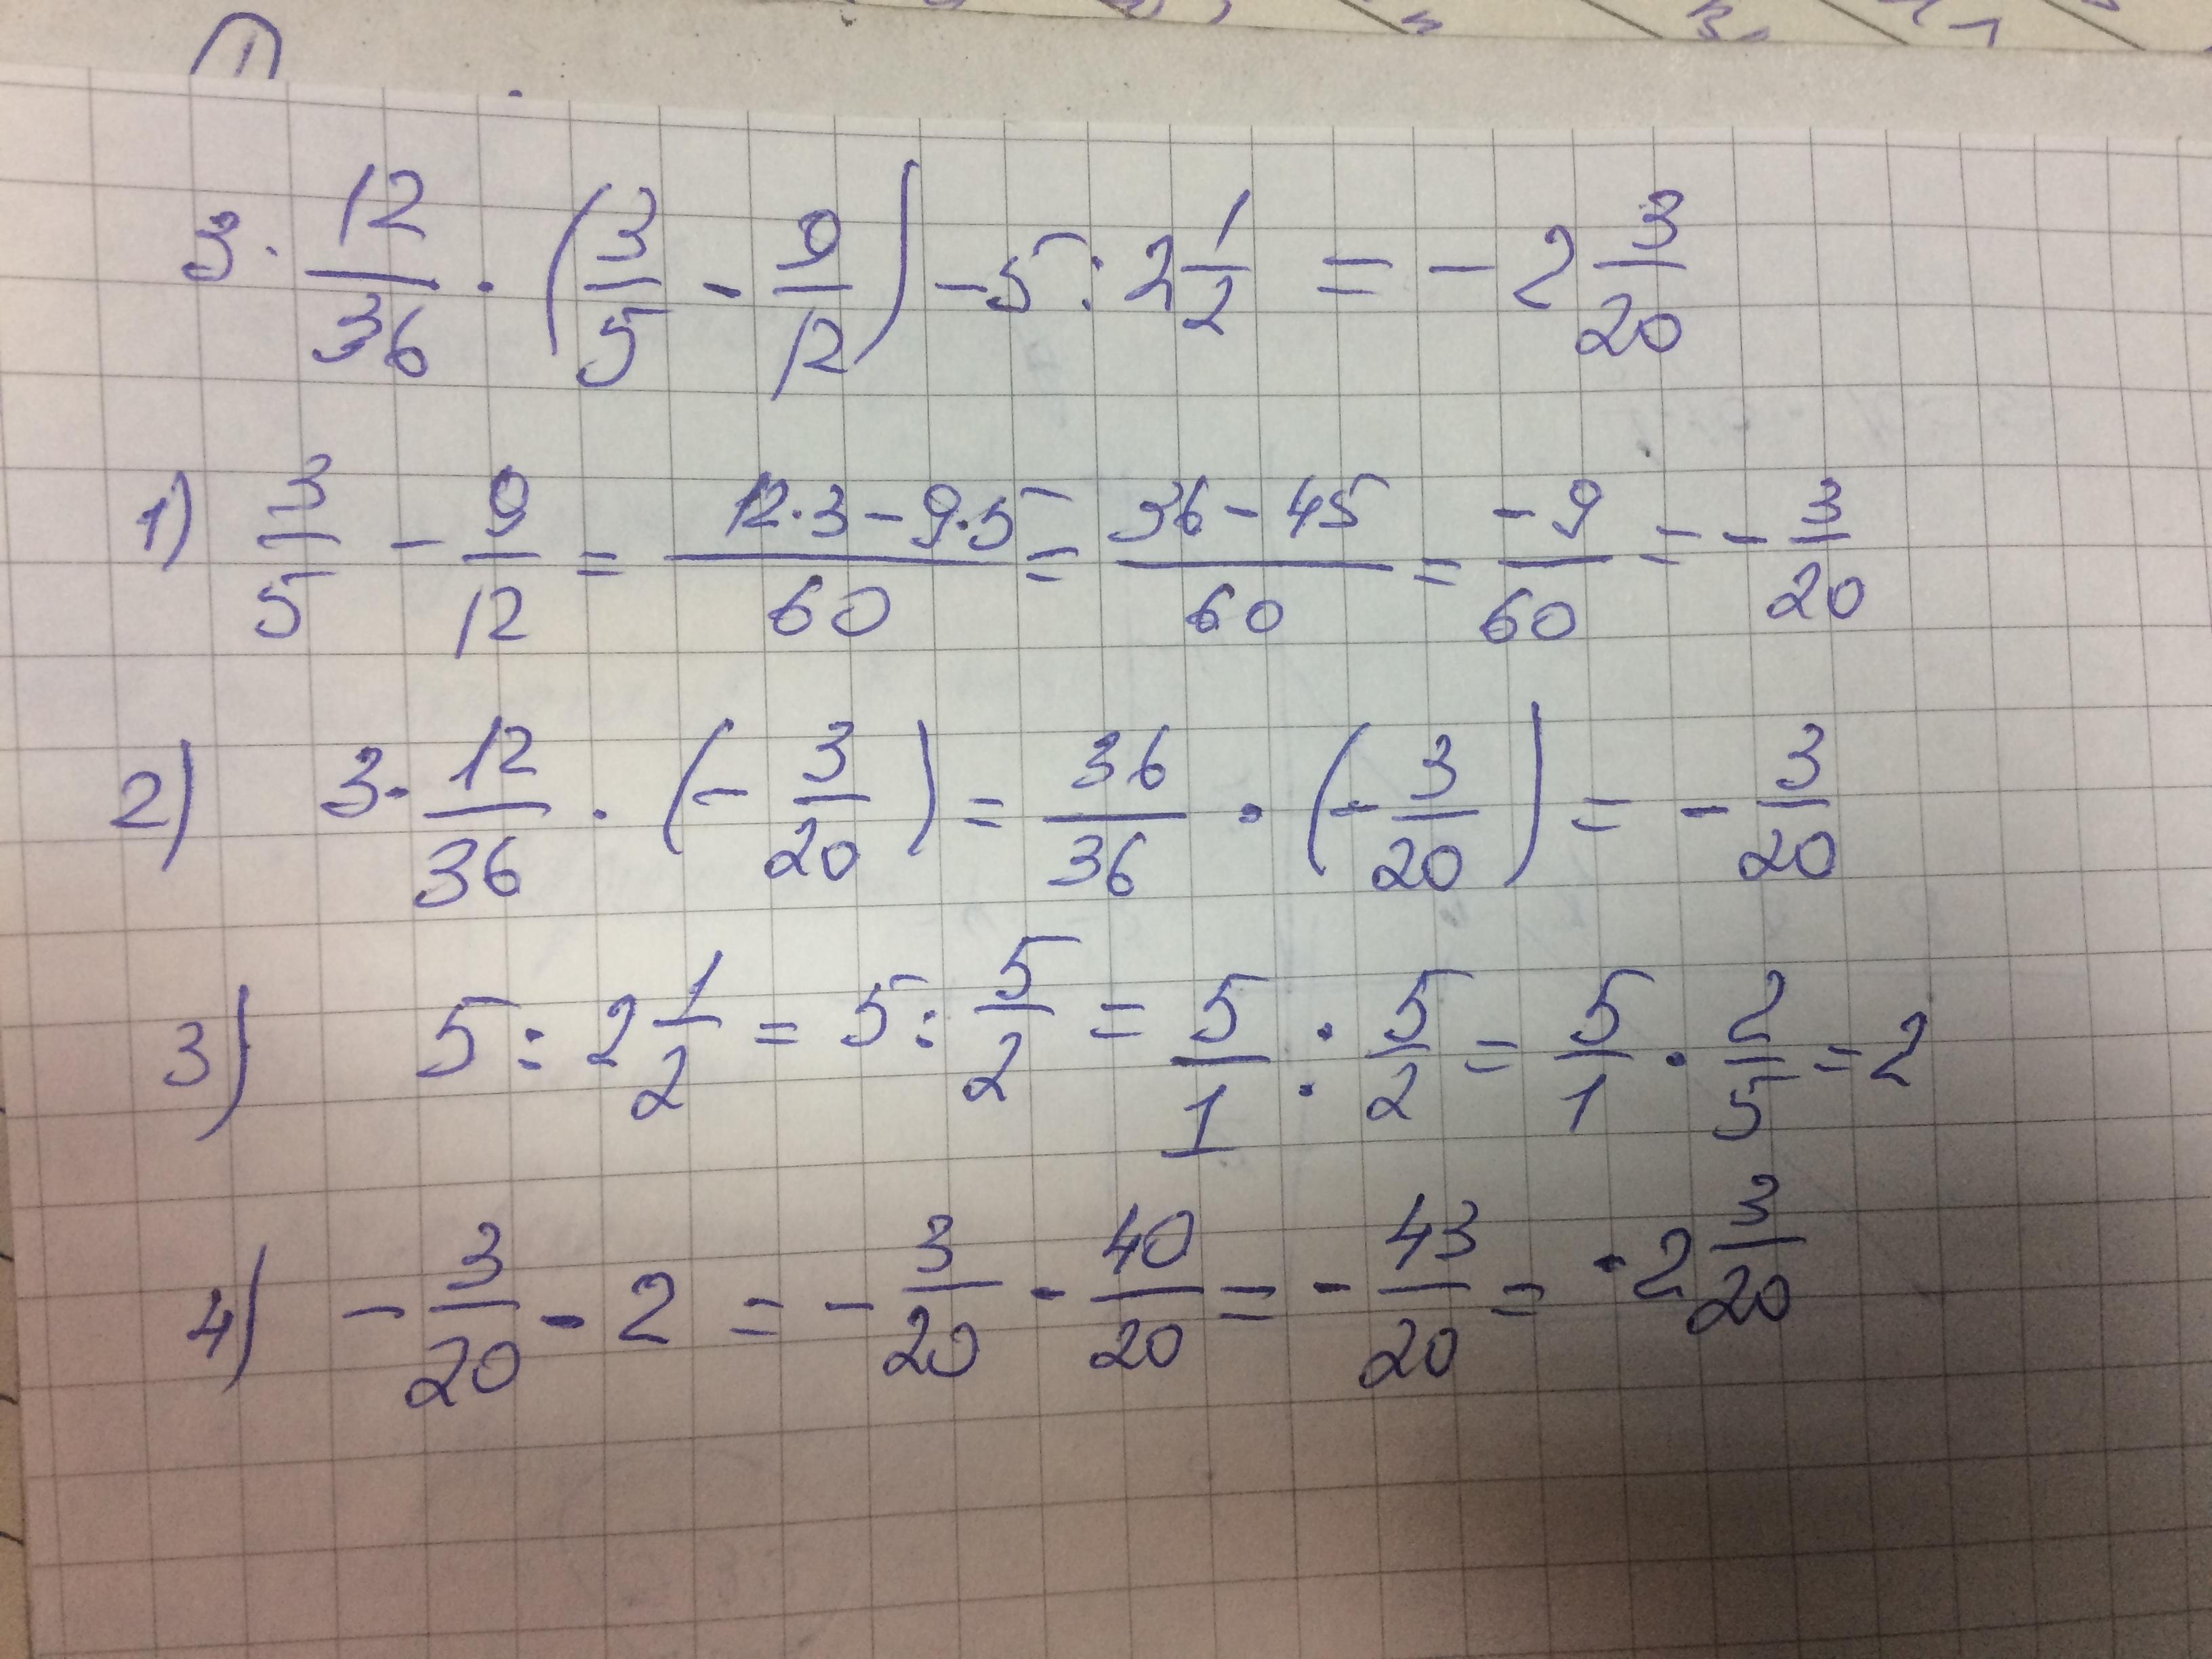 3 · 12/36 · (3/5 - 9/12) - 5 : 2 1/2 = - 2 3/20
1) 3/5 - 9/12 = (12·3 - 9·5)/60 = (36 - 45)/60 = -9/60 = - 3/20
2) 3 · 12/36 · (- 3/20) = 36/36 · (- 3/20) = - 3/20
3) 5 : 2 1/2 = 5 : 5/2 = 5/1 : 5/2 = 5/1 · 2/5 = 2
4) - 3/20 - 2 = - 3/20 - 40/20 = - 43/20 = - 2 3/20